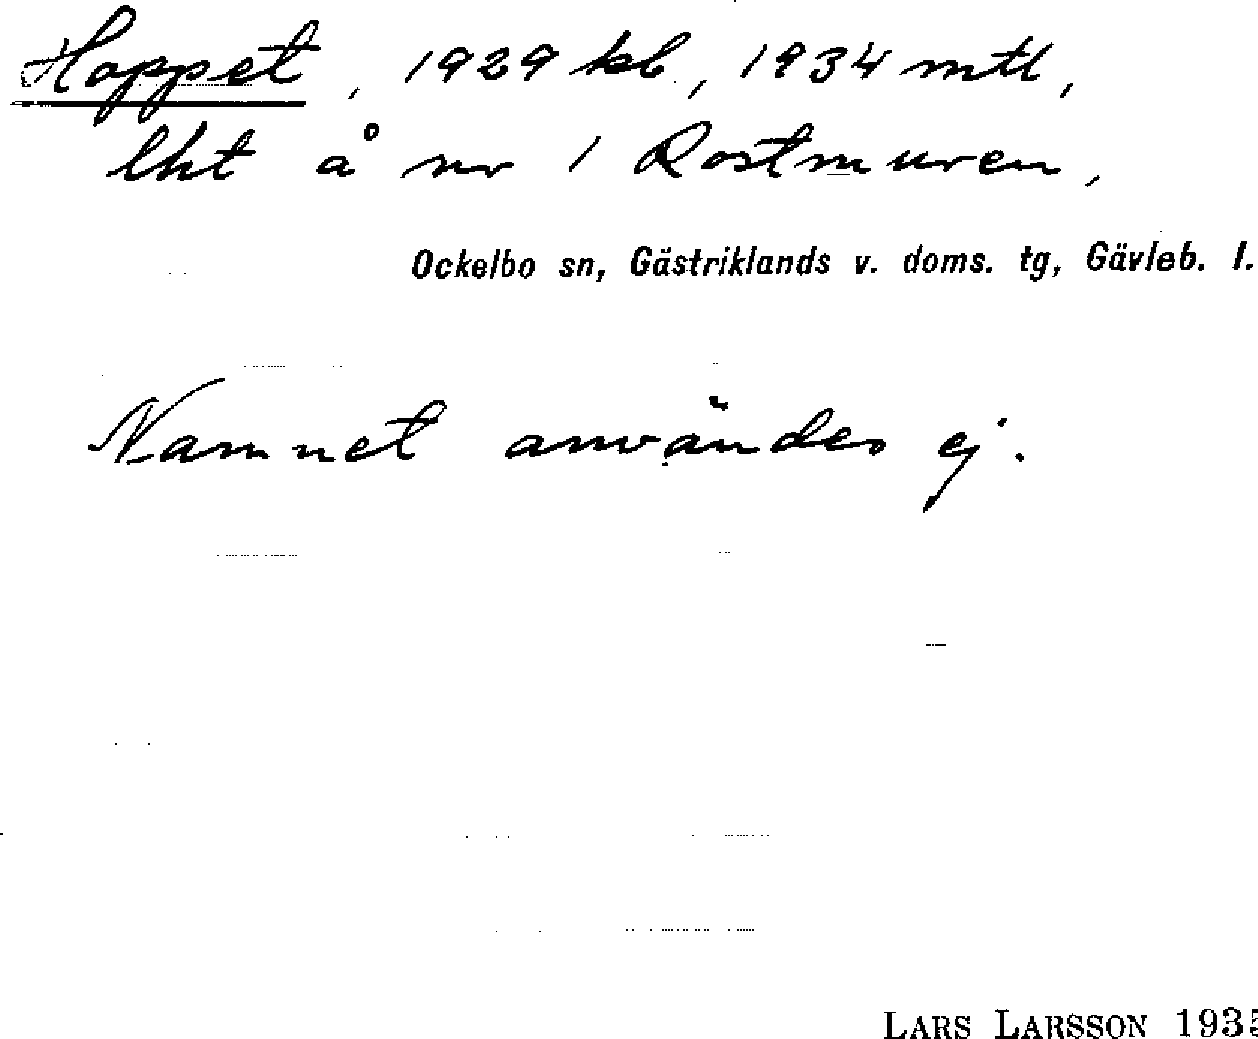 Hoppet, 1929 kb., 1934 mtl,
lht å nr 1 Rostmuren,
Ockelbo sn, Gästriklands v. doms. tg, Gävleb. l.
Namnet användes ej.
LARS LARSSON 1935